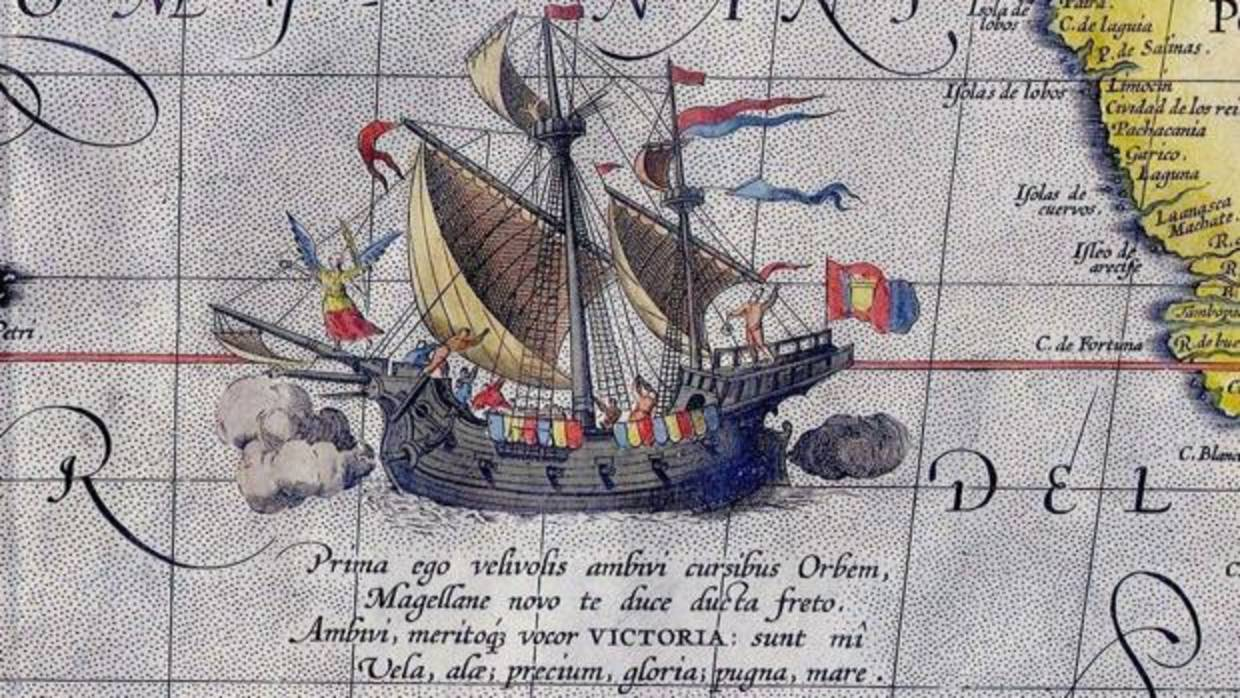 Isola de
lobos
Paita.
C. de laguia
P. de Salinas.
Isolas de lobos
Limocin
Cividad de los rei
Pachacania
Garico.
Laguna
Isolas de
cuervos.
Isleo de
arecife
Petri
C. de Fortuna
R. de bue
R
DEL
C. Blanc
Prima ego velivolis ambivi cursibus Orbem,
Magellane novo te duce ducta freto.
Ambivi, meritoq́ʒ vocor VICTORIA: sunt mî
Vela, alæ; precium, gloria; pugna, mare.